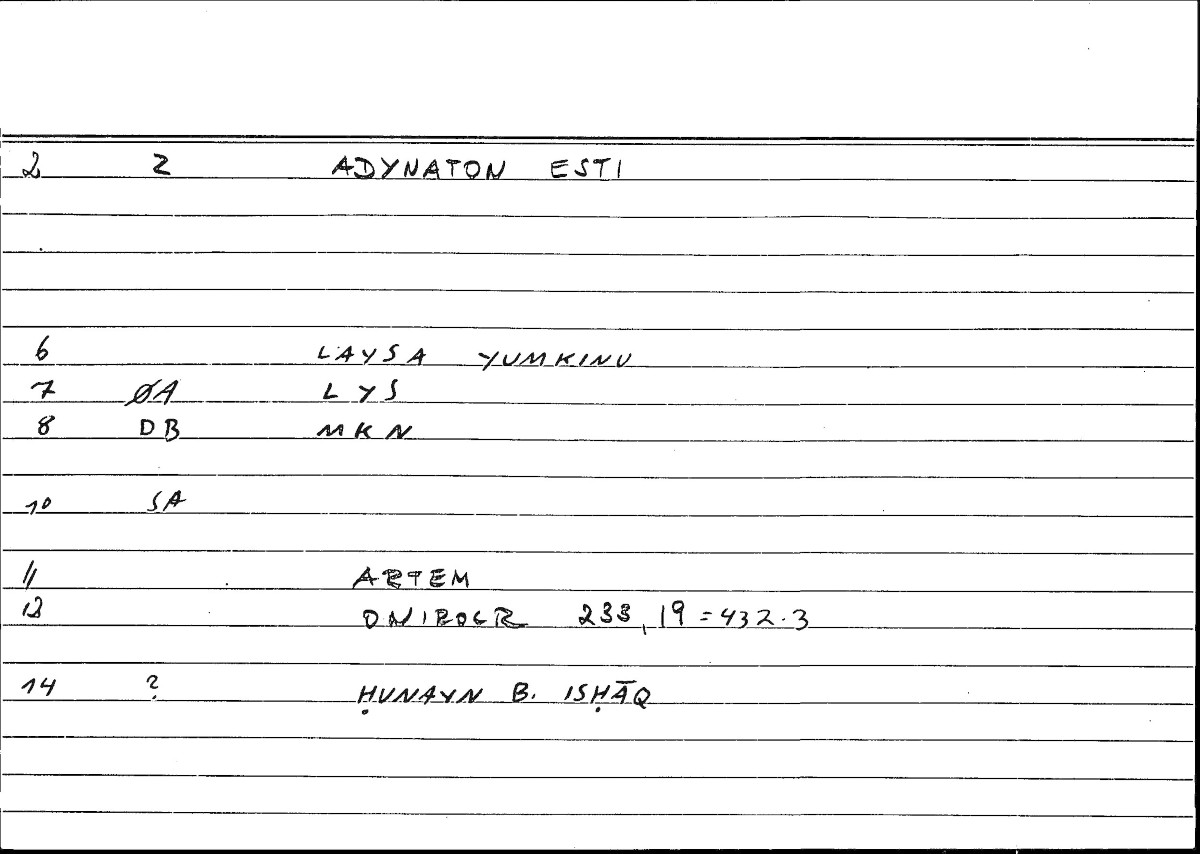 2 2 ADYNATON ESTI
6 LAYSA YUMKINU
7 ØA LYS
8 DB MKN
10 SA
11 ARTEM
13 ONIROCR 233,19=432.3
14 ? ḤUNAYN B. ISḤĀQ